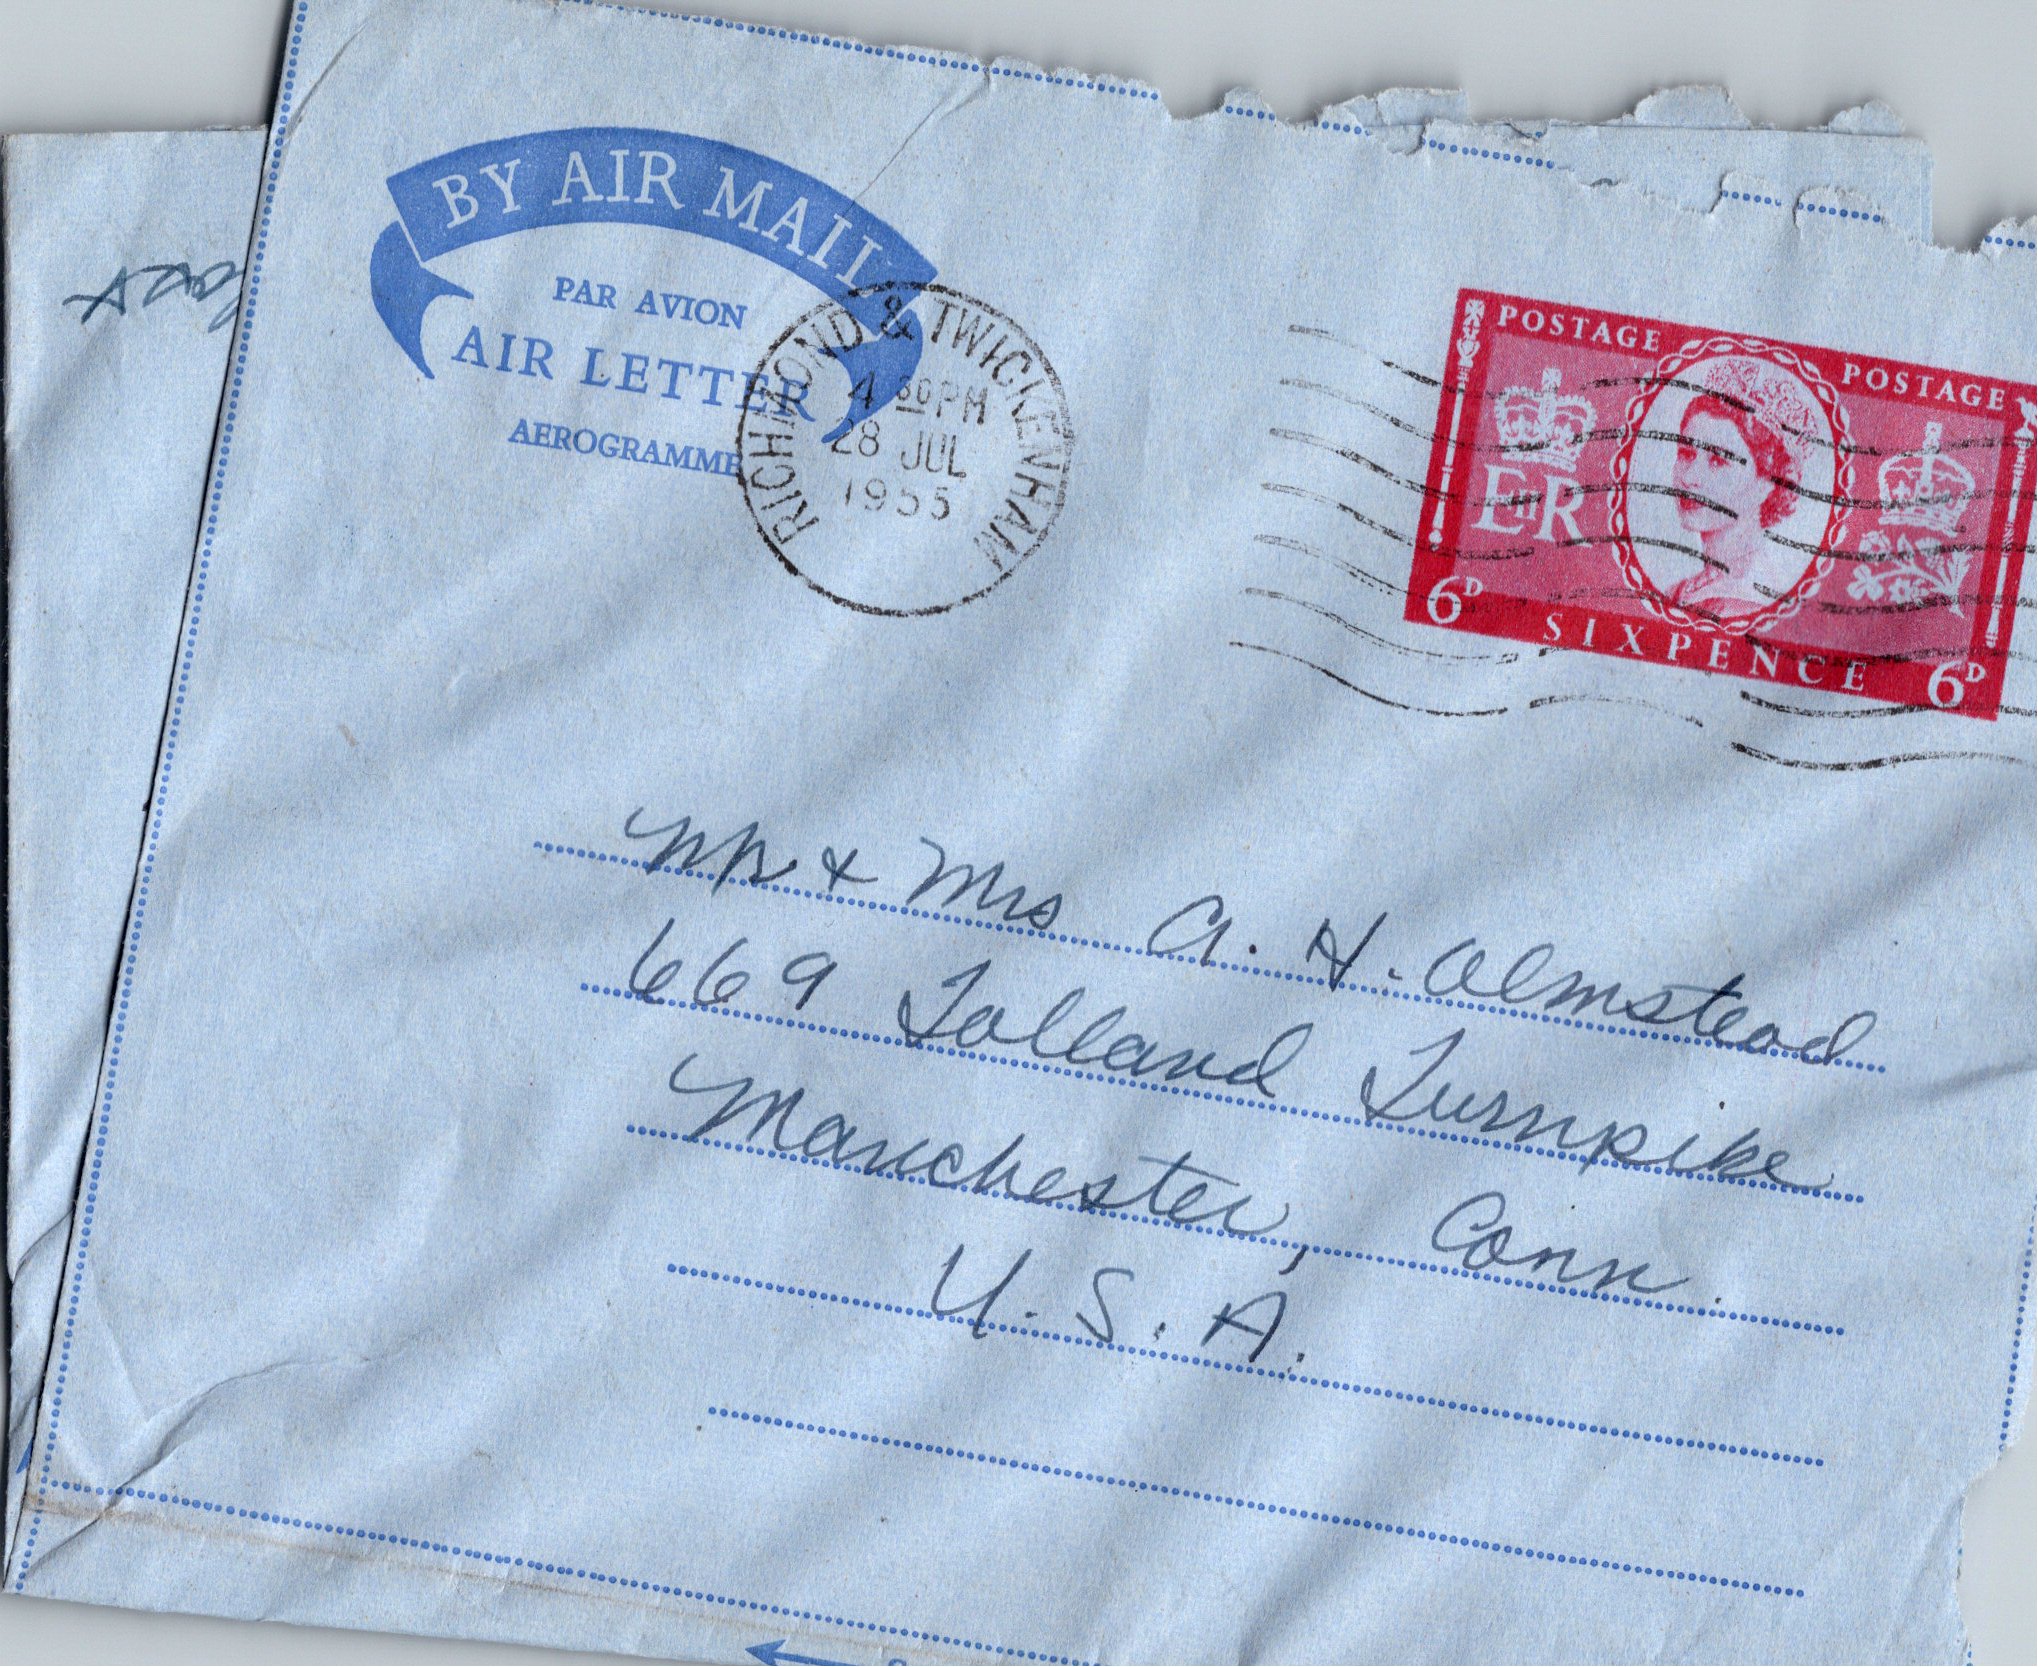 BY AIR MAIL
PAR AVION
AIR LETTER
AEROGRAMME
RICHMOND & TWICKENHAM
4 30 PM
28 JUL
1955
POSTAGE POSTAGE
E II R
6D SIXPENCE 6D
Mr & Mrs A. H. Olmstead
669 Tolland Turnpike
Manchester, Conn.
U. S. A.